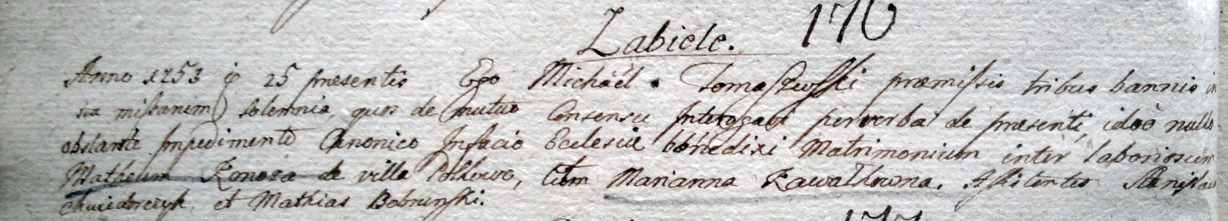 Zabiele. 170
Anno 1753 25 presentis Ego Michaël Tomaszewski præmissis tribus bannis
solemnia, quos de mutuo Consensu Interogavi per verba de presenti, ideo nullo
obstante Impedimento Canonico Infacie Ecclesie benedixi Matrimonium inter Laboriosum
Matheum de villa, Cum Marianna Kawałkowna. Assistentes Stanislao
et Mathias Bobrunski.